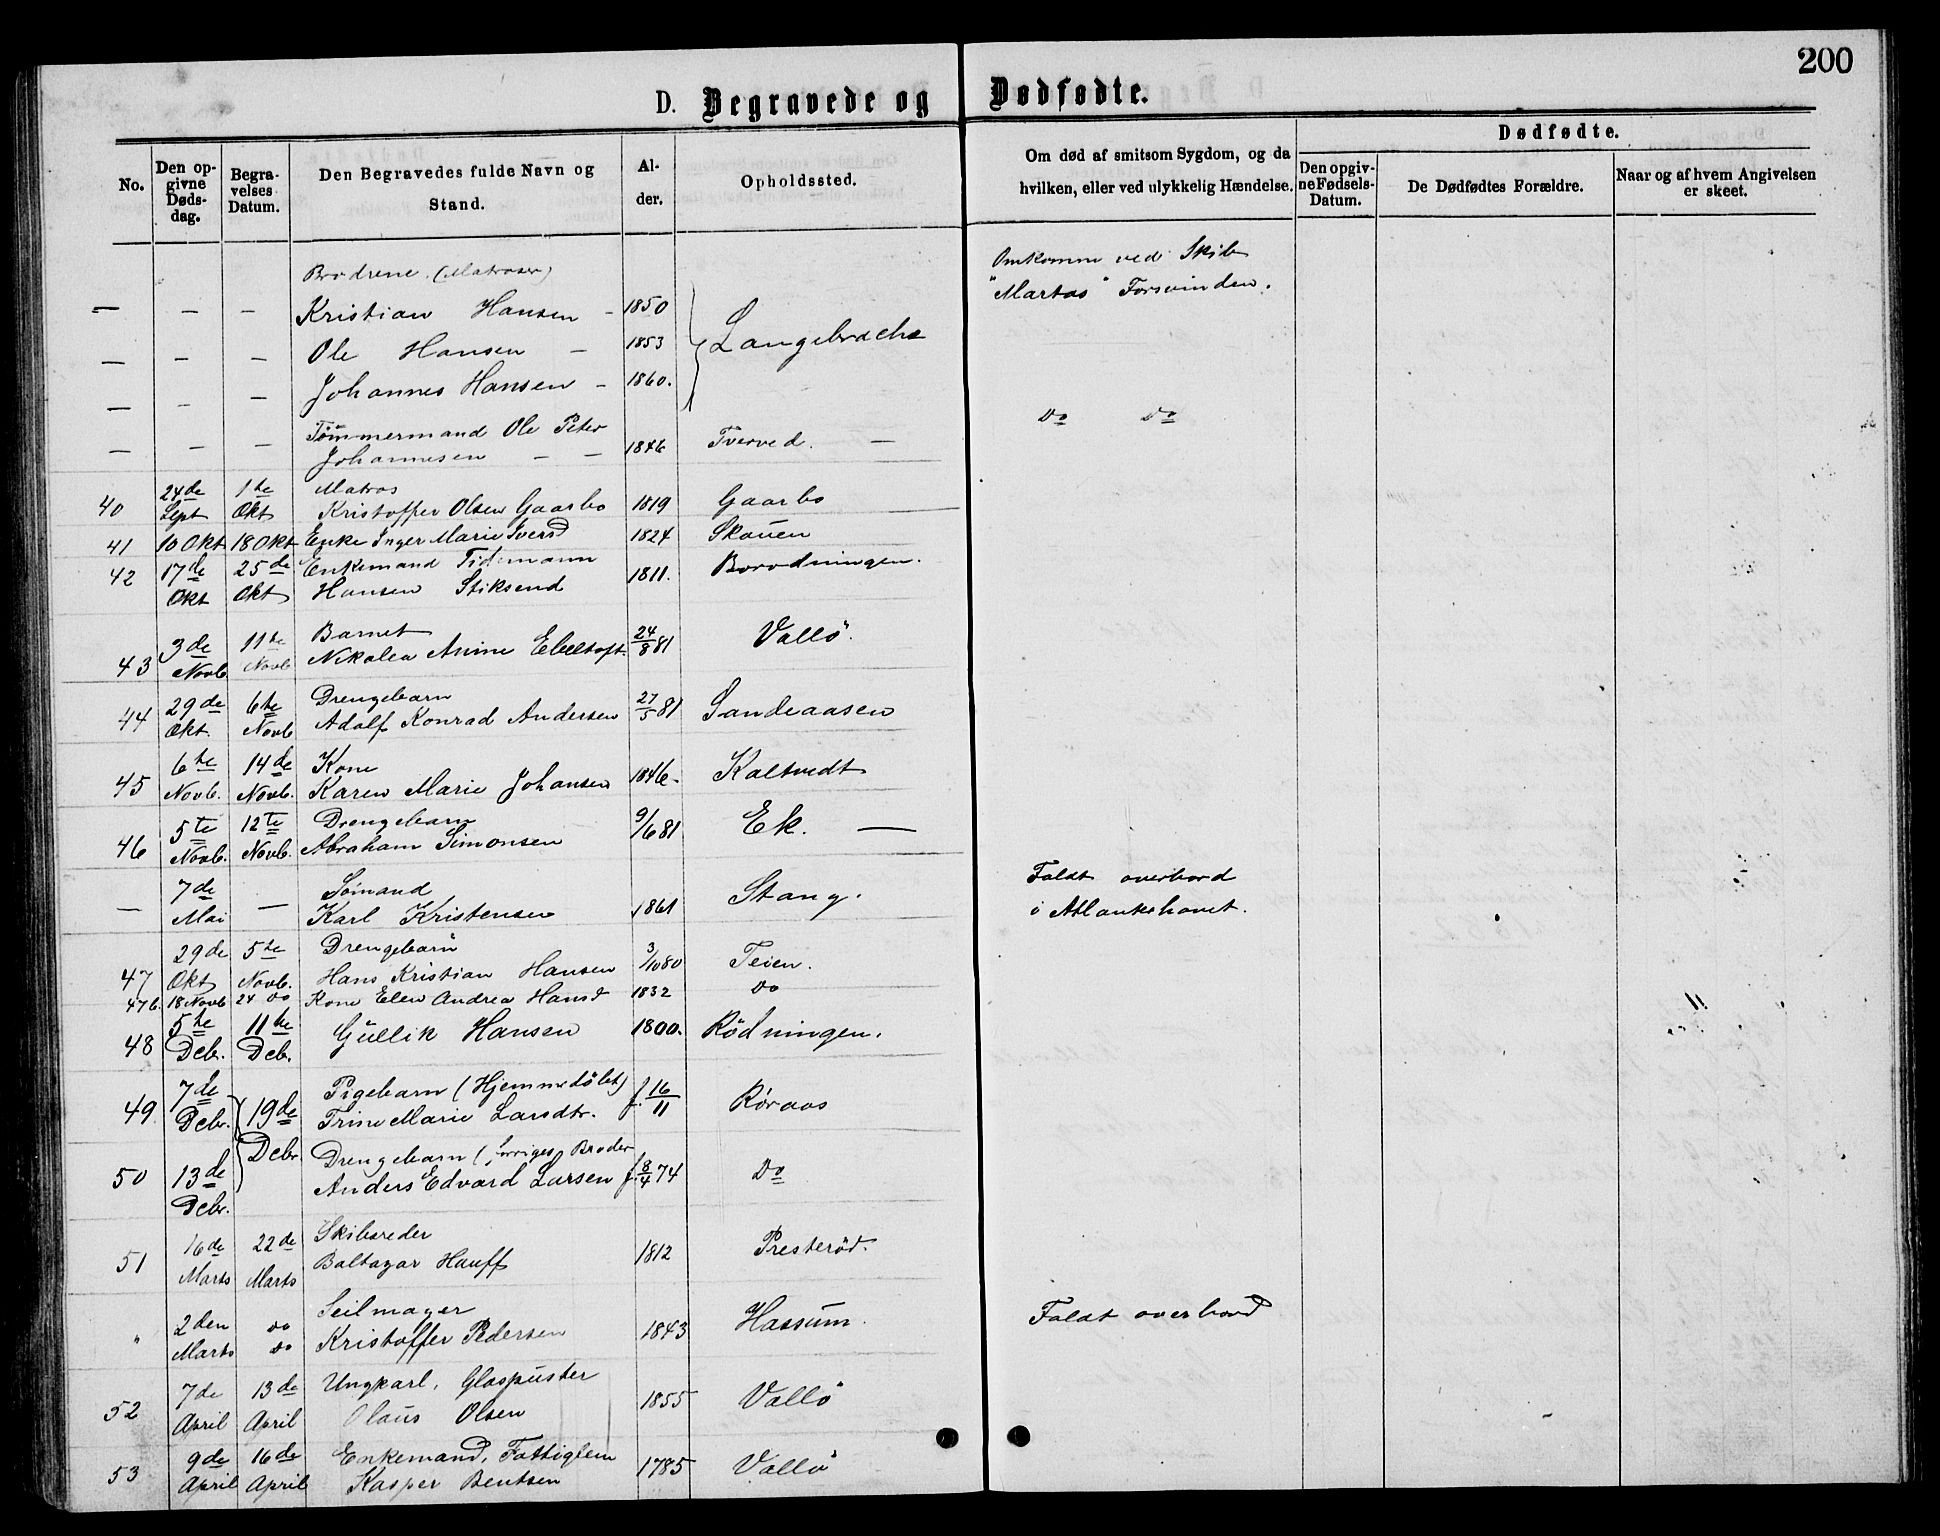 200
D. Begravede og Dødfødte.
No.
Den opgivne Dødsdag.
Begravelses Datum.
Den Begravedes fulde Navn og Stand.
Alder.
Opholdssted.
Om død af smitsom Sygdom, og da hvilken, eller ved ulykkelig Hændelse.
Dødfødte.
Den opgivne Fødsels-Datum.
De Dødfødtes Forældre.
Naar og af hvem Angivelsen er skeet.
Brødrene (Matroser) Omkomne ved Skib
— — — Kristian Hansen – 1850 "Martas" Forsvinden.
— — — Ole Hansen – 1853 Langebrække
— — — Johannes Hansen – 1860.
Tømmermand Ole Peter Do Do
— — — Johannesen — — 1846 Tverved. —
24de 1te Matros
40 Sept Okt Kristoffer Olsen Gaarbo 1819 Gaarbo
41 10 Okt 18 Okt Enke Inger Marie Iversd 1824 Skouen
42 17de 25de Enkemand Tidemann 1811. Borodningen.
Okt Okt Hansen Stiksend
3de 11te Barnet 24/8 81 Vallö.
43 Novb. Novb Nikolea Anine Ebeltoft
29de 6te Drengebarn 27/5 81 Sandeaasen
44 Okt. Novb Adolf Konrad Andersen
6te 14de Kone 1846- Kaltvedt
45 Novb. Novb. Karen Marie Johansen
5te 12te Drengebarn 9/6 81 Ek. —
46 Novb. Novb. Abraham Simonsen
7de Sømand Stang. Faldt overbord
— Mai — Karl Kristensen 1861 i Atlanterhavet.
29de 5te Drengebarn 3/10 80 Teien.
47 Okt Novb. Hans Kristian Hansen
47b. 18 Novb 24 do Kone Elen Andrea Hansd 1832 do
48 5te Deb. 11te Deb. Gullik Hansen 1800. Rödningen.
7de Pigebarn (Hjemmedöbt) f. 16/11 Röraas
49. Debr. 19de Debr Trine Marie Larsdtr.
50 13de Drengebarn (forriges Broder
Debr. Anders Edvard Larsen f. 8/4 74 Do
16de 22de Skibsreder
51 Marts Marts Baltazar Hauff 1812 Presteröd.
2den do Seilmager Hassum. Faldt overbord
" Marts do Kristoffer Pedersen 1843
7de 13de Ungkarl, Glaspuster 1855 Vallö
52 April April Olaus Olsen
9de 16de Enkemand, Fattiglem 1785 Vallö
53 April April Kasper Bentsen